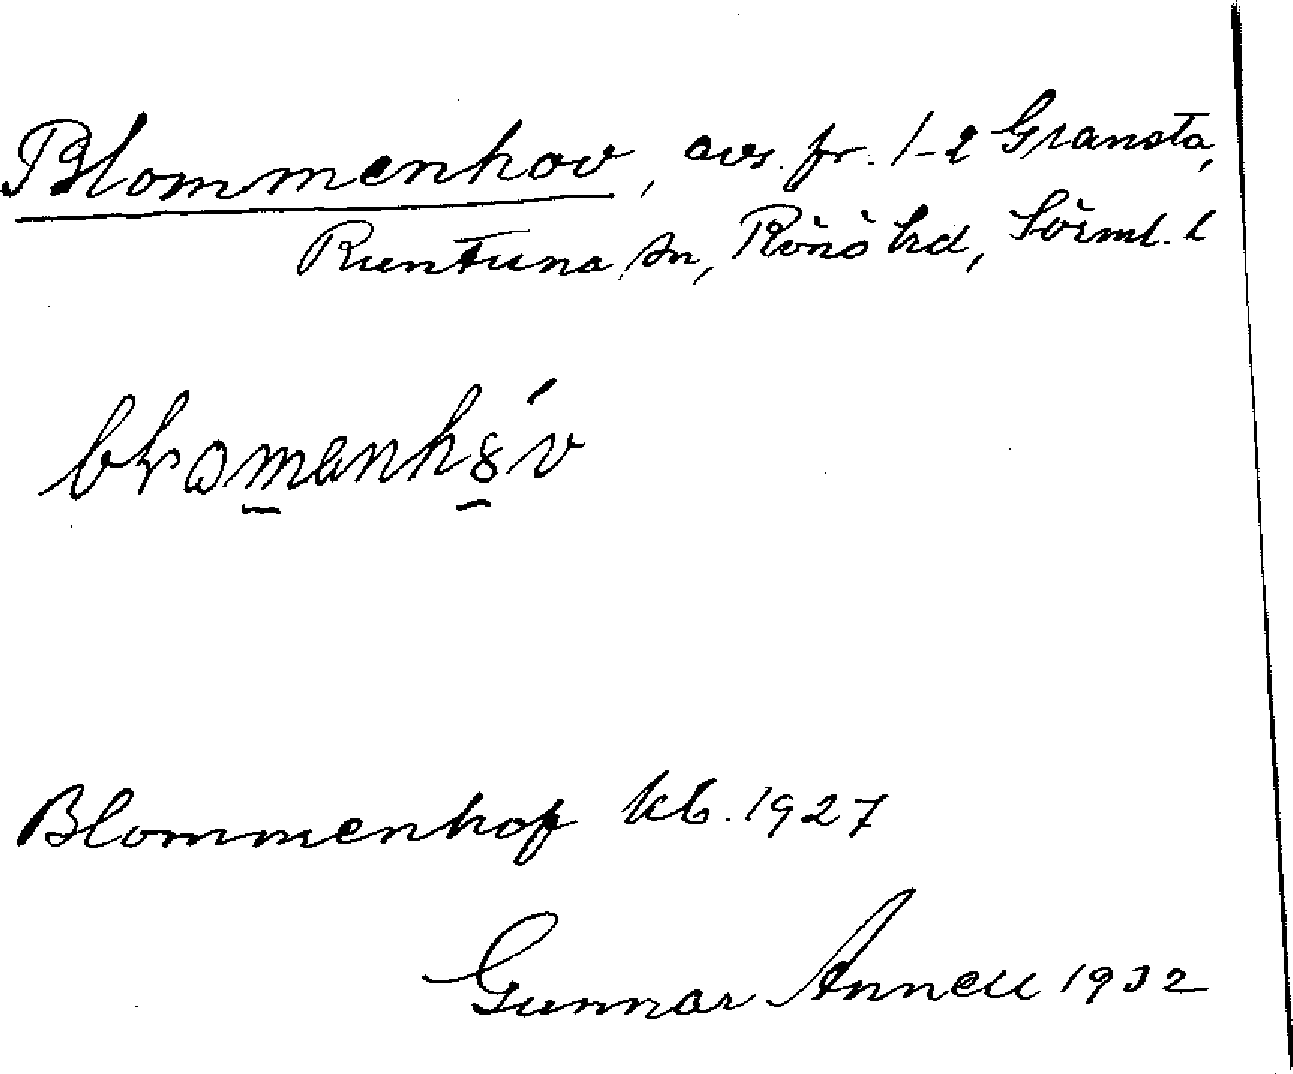 Blommenhov, avs. fr. 1-2 Gransta,
Runtuna sn, Rönö hd, Sörml. l
Blommenhof kb. 1927
Gunnar Annell 1932